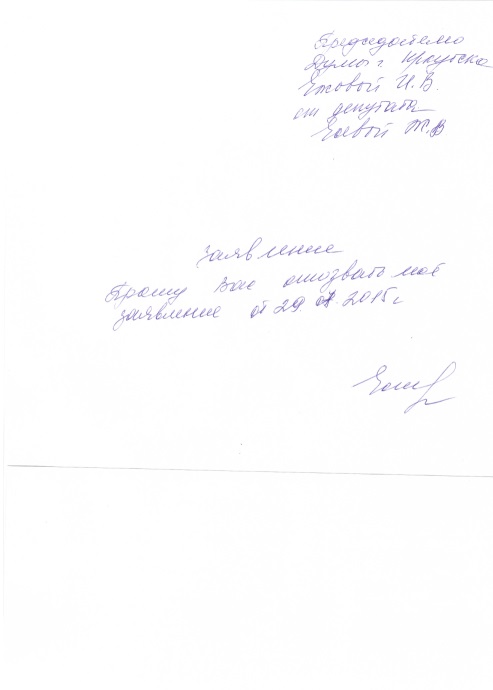 Председателю
Думы г. Иркутска
Ежовой И.В.
от депутата
Еловой Т.В
заявление
Прошу Вас отозвать моё
заявление от 29.01.2015г